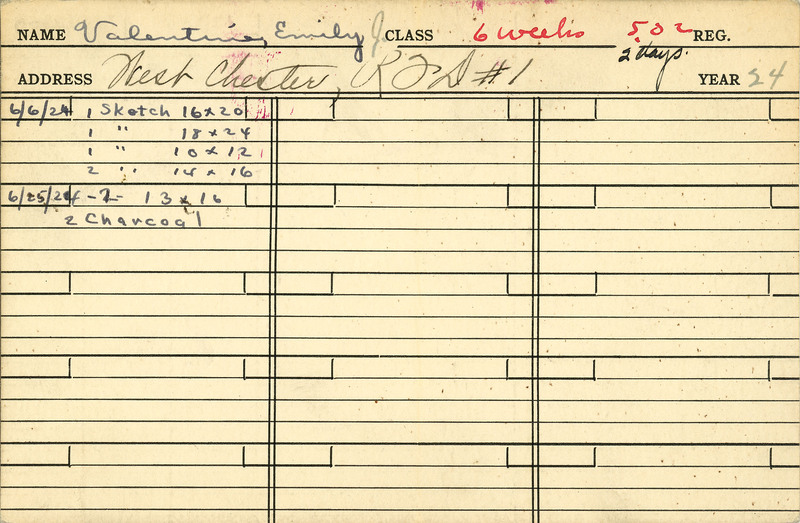 NAME Valentine, Emily J. CLASS 6 weeks 5.02 REG.
2 days.
ADDRESS West Chester, RFD #1 YEAR 24
6/6/24 1 Sketch 16 x 20
1 " 18 x 24
1 " 10 x 12
2 " 14 x 16
6/25/24 - 2 - 13 x 16
2 Charcoal